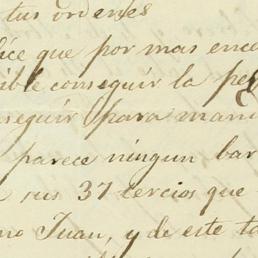 tus ordenes
dice que por mas enca
ible conseguir la pe
seguir para man
parece ningun bar
sus 37 tercios que
no Juan, y de este ta